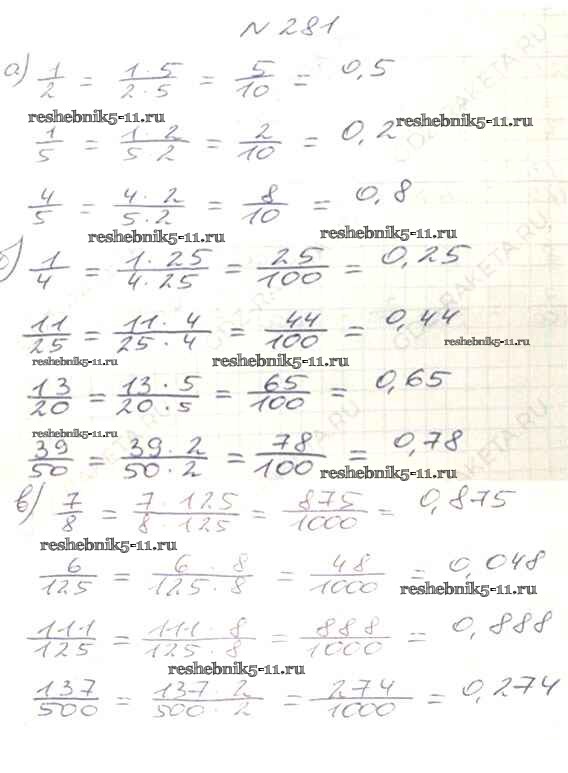 N 281
а) 1/2 = 1·5/2·5 = 5/10 = 0,5
reshebnik5-11.ru
reshebnik5-11.ru
1/5 = 1·2/5·2 = 2/10 = 0,2
4/5 = 4·2/5·2 = 8/10 = 0,8
reshebnik5-11.ru
reshebnik5-11.ru
б) 1/4 = 1·25/4·25 = 25/100 = 0,25
11/25 = 11·4/25·4 = 44/100 = 0,44
reshebnik5-11.ru
reshebnik5-11.ru
reshebnik5-11.ru
13/20 = 13·5/20·5 = 65/100 = 0,65
reshebnik5-11.ru
39/50 = 39·2/50·2 = 78/100 = 0,78
reshebnik5-11.ru
в) 7/8 = 7·125/8·125 = 875/1000 = 0,875
reshebnik5-11.ru
6/125 = 6·8/125·8 = 48/1000 = 0,048
reshebnik5-11.ru
111/125 = 111·8/125·8 = 888/1000 = 0,888
reshebnik5-11.ru
137/500 = 137·2/500·2 = 274/1000 = 0,274